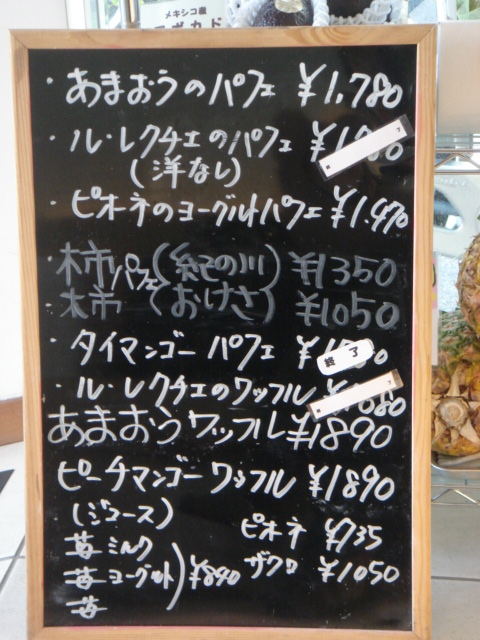 メキシコ産
アボカド
・あまおうのパフェ ¥1,780
・ル・レクチェのパフェ
(洋なし)
・ピオーネのヨーグルトパフェ ¥1,470
・柿パフェ(紀の川) ¥1350
・柿 (おけさ) ¥1050
・タイマンゴー パフェ
終了
・ル・レクチェのワッフル
あまおうワッフル ¥1890
ピーチマンゴーワッフル ¥1890
(ジュース) ピオーネ ¥735
苺ミルク ザクロ ¥1050
苺ヨーグルト ¥840
苺